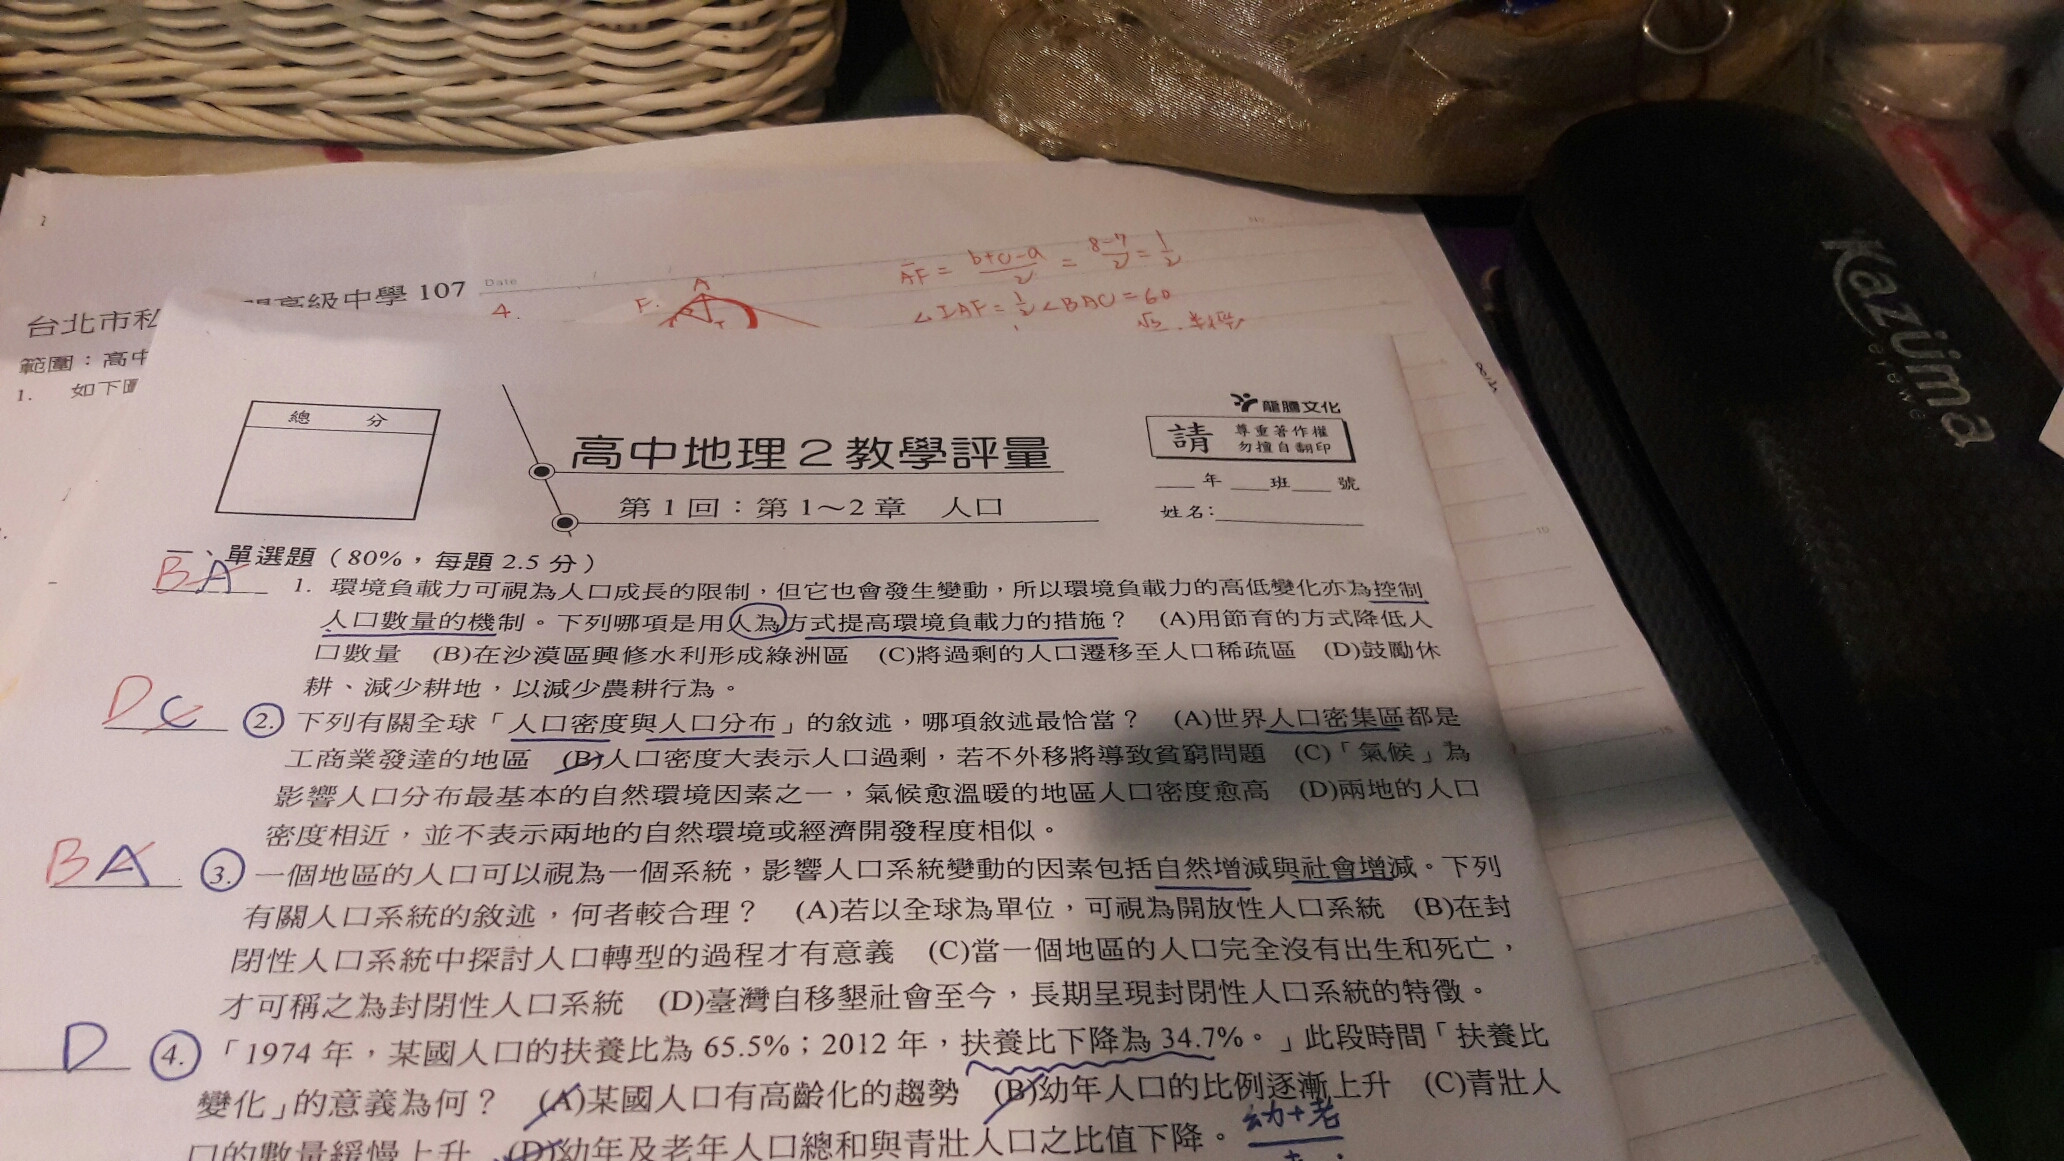 台北市私
高級中學 107
範圍：高中
1. 如下
Date
No
4.
F.
A
I
AF = b+c-a/2 = 8-7/2 = 1/2
∠IAF = 1/2 ∠BAC = 60
Kazüma
eyewe
總 分
高中地理2教學評量
第1回：第1～2章 人口
龍騰文化
請 尊重著作權
勿擅自翻印
年 班 號
姓名：
一、單選題（80%，每題2.5分）
B A 1. 環境負載力可視為人口成長的限制，但它也會發生變動，所以環境負載力的高低變化亦為控制
人口數量的機制。下列哪項是用人為方式提高環境負載力的措施？ (A)用節育的方式降低人
口數量 (B)在沙漠區興修水利形成綠洲區 (C)將過剩的人口遷移至人口稀疏區 (D)鼓勵休
耕、減少耕地，以減少農耕行為。
D C 2. 下列有關全球「人口密度與人口分布」的敘述，哪項敘述最恰當？ (A)世界人口密集區都是
工商業發達的地區 (B)人口密度大表示人口過剩，若不外移將導致貧窮問題 (C)「氣候」為
影響人口分布最基本的自然環境因素之一，氣候愈溫暖的地區人口密度愈高 (D)兩地的人口
密度相近，並不表示兩地的自然環境或經濟開發程度相似。
B A 3. 一個地區的人口可以視為一個系統，影響人口系統變動的因素包括自然增減與社會增減。下列
有關人口系統的敘述，何者較合理？ (A)若以全球為單位，可視為開放性人口系統 (B)在封
閉性人口系統中探討人口轉型的過程才有意義 (C)當一個地區的人口完全沒有出生和死亡，
才可稱之為封閉性人口系統 (D)臺灣自移墾社會至今，長期呈現封閉性人口系統的特徵。
D 4. 「1974 年，某國人口的扶養比為 65.5%；2012 年，扶養比下降為 34.7%。」此段時間「扶養比
變化」的意義為何？ (A)某國人口有高齡化的趨勢 (B)幼年人口的比例逐漸上升 (C)青壯人
口的數量緩慢上升 (D)幼年及老年人口總和與青壯人口之比值下降。
幼+老